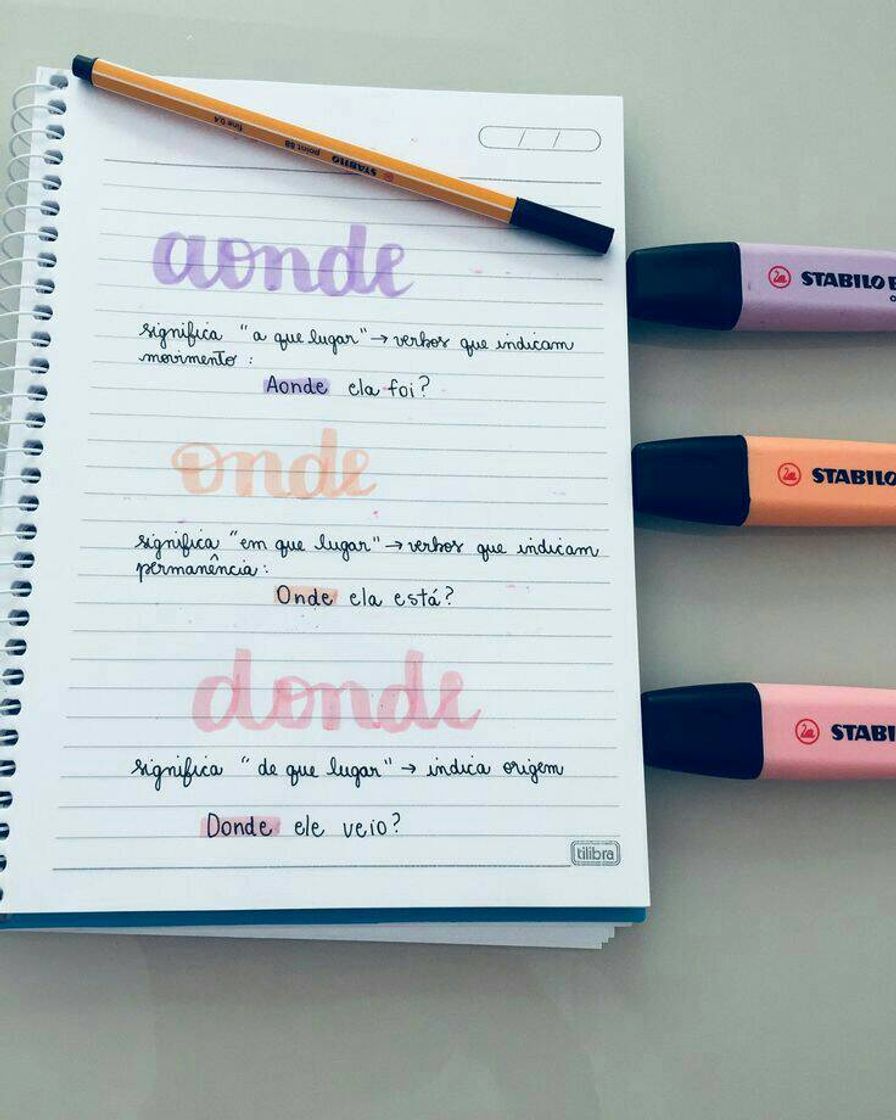 STABILO point 88 fine 0.4
/ /
aonde
significa "a que lugar" → verbos que indicam
movimento :
Aonde ela foi?
onde
significa "em que lugar" → verbos que indicam
permanência :
Onde ela está?
donde
significa "de que lugar" → indica origem
Donde ele veio?
tilibra
STABILO
STABILO
STABI